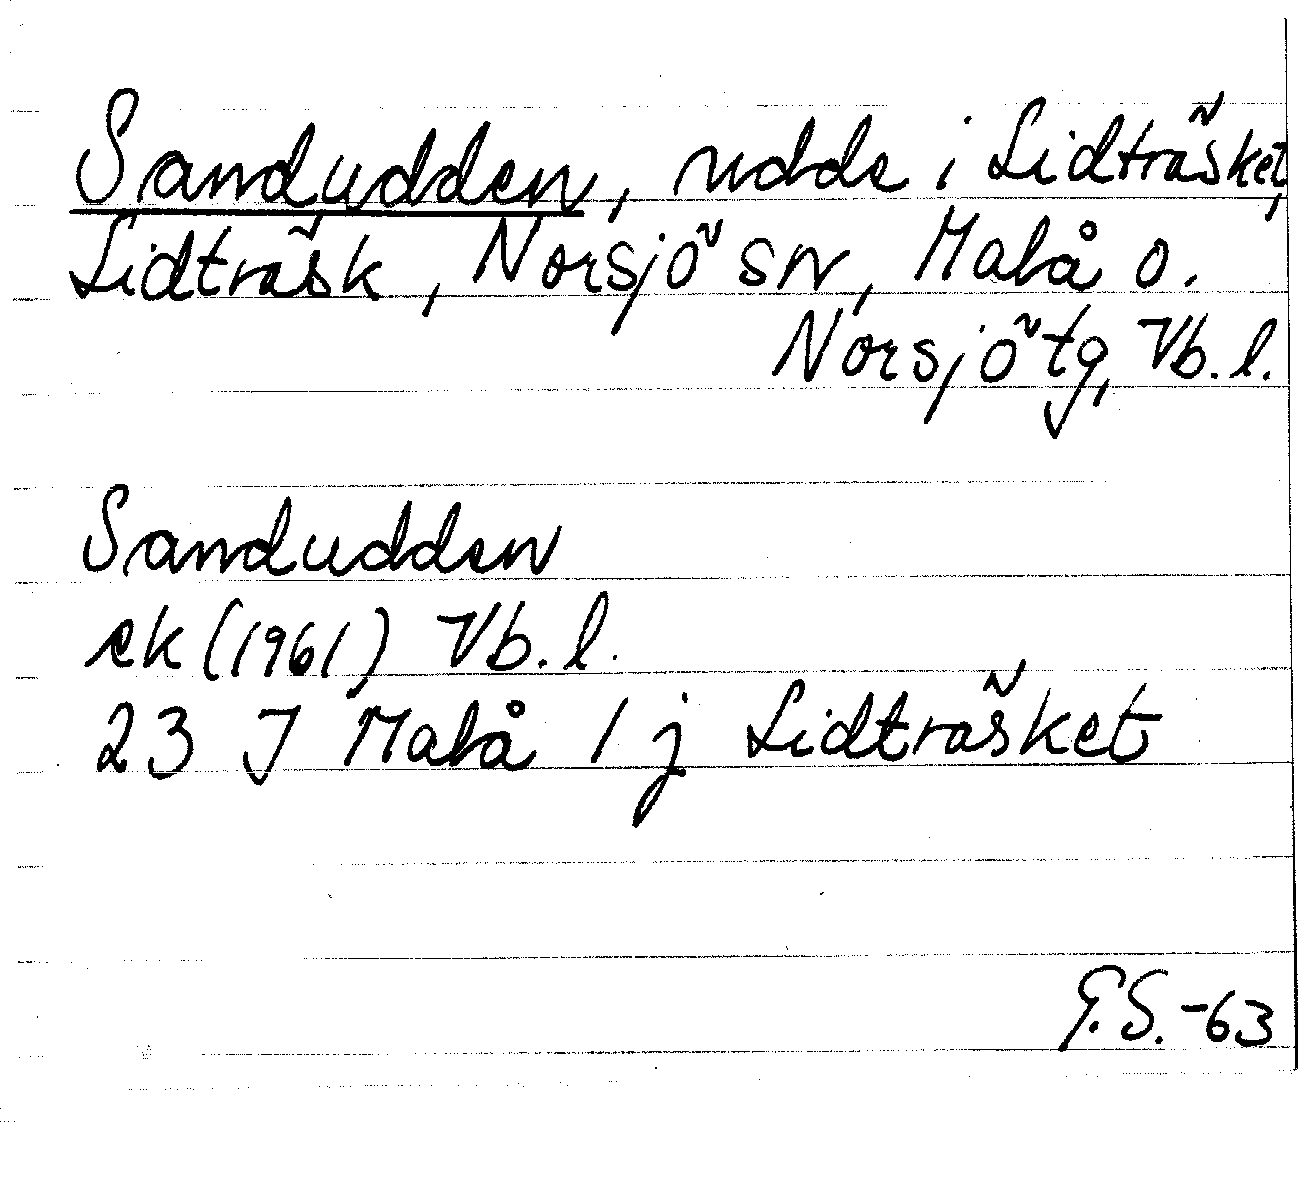 Sandudden, udde i Lidträsket,
Lidträsk, Norsjö sn, Malå o.
Norsjö tg, Vb. l.
Sandudden
ek (1961) Vb. l.
23 J Malå 1 j Lidträsket
G.S. -63